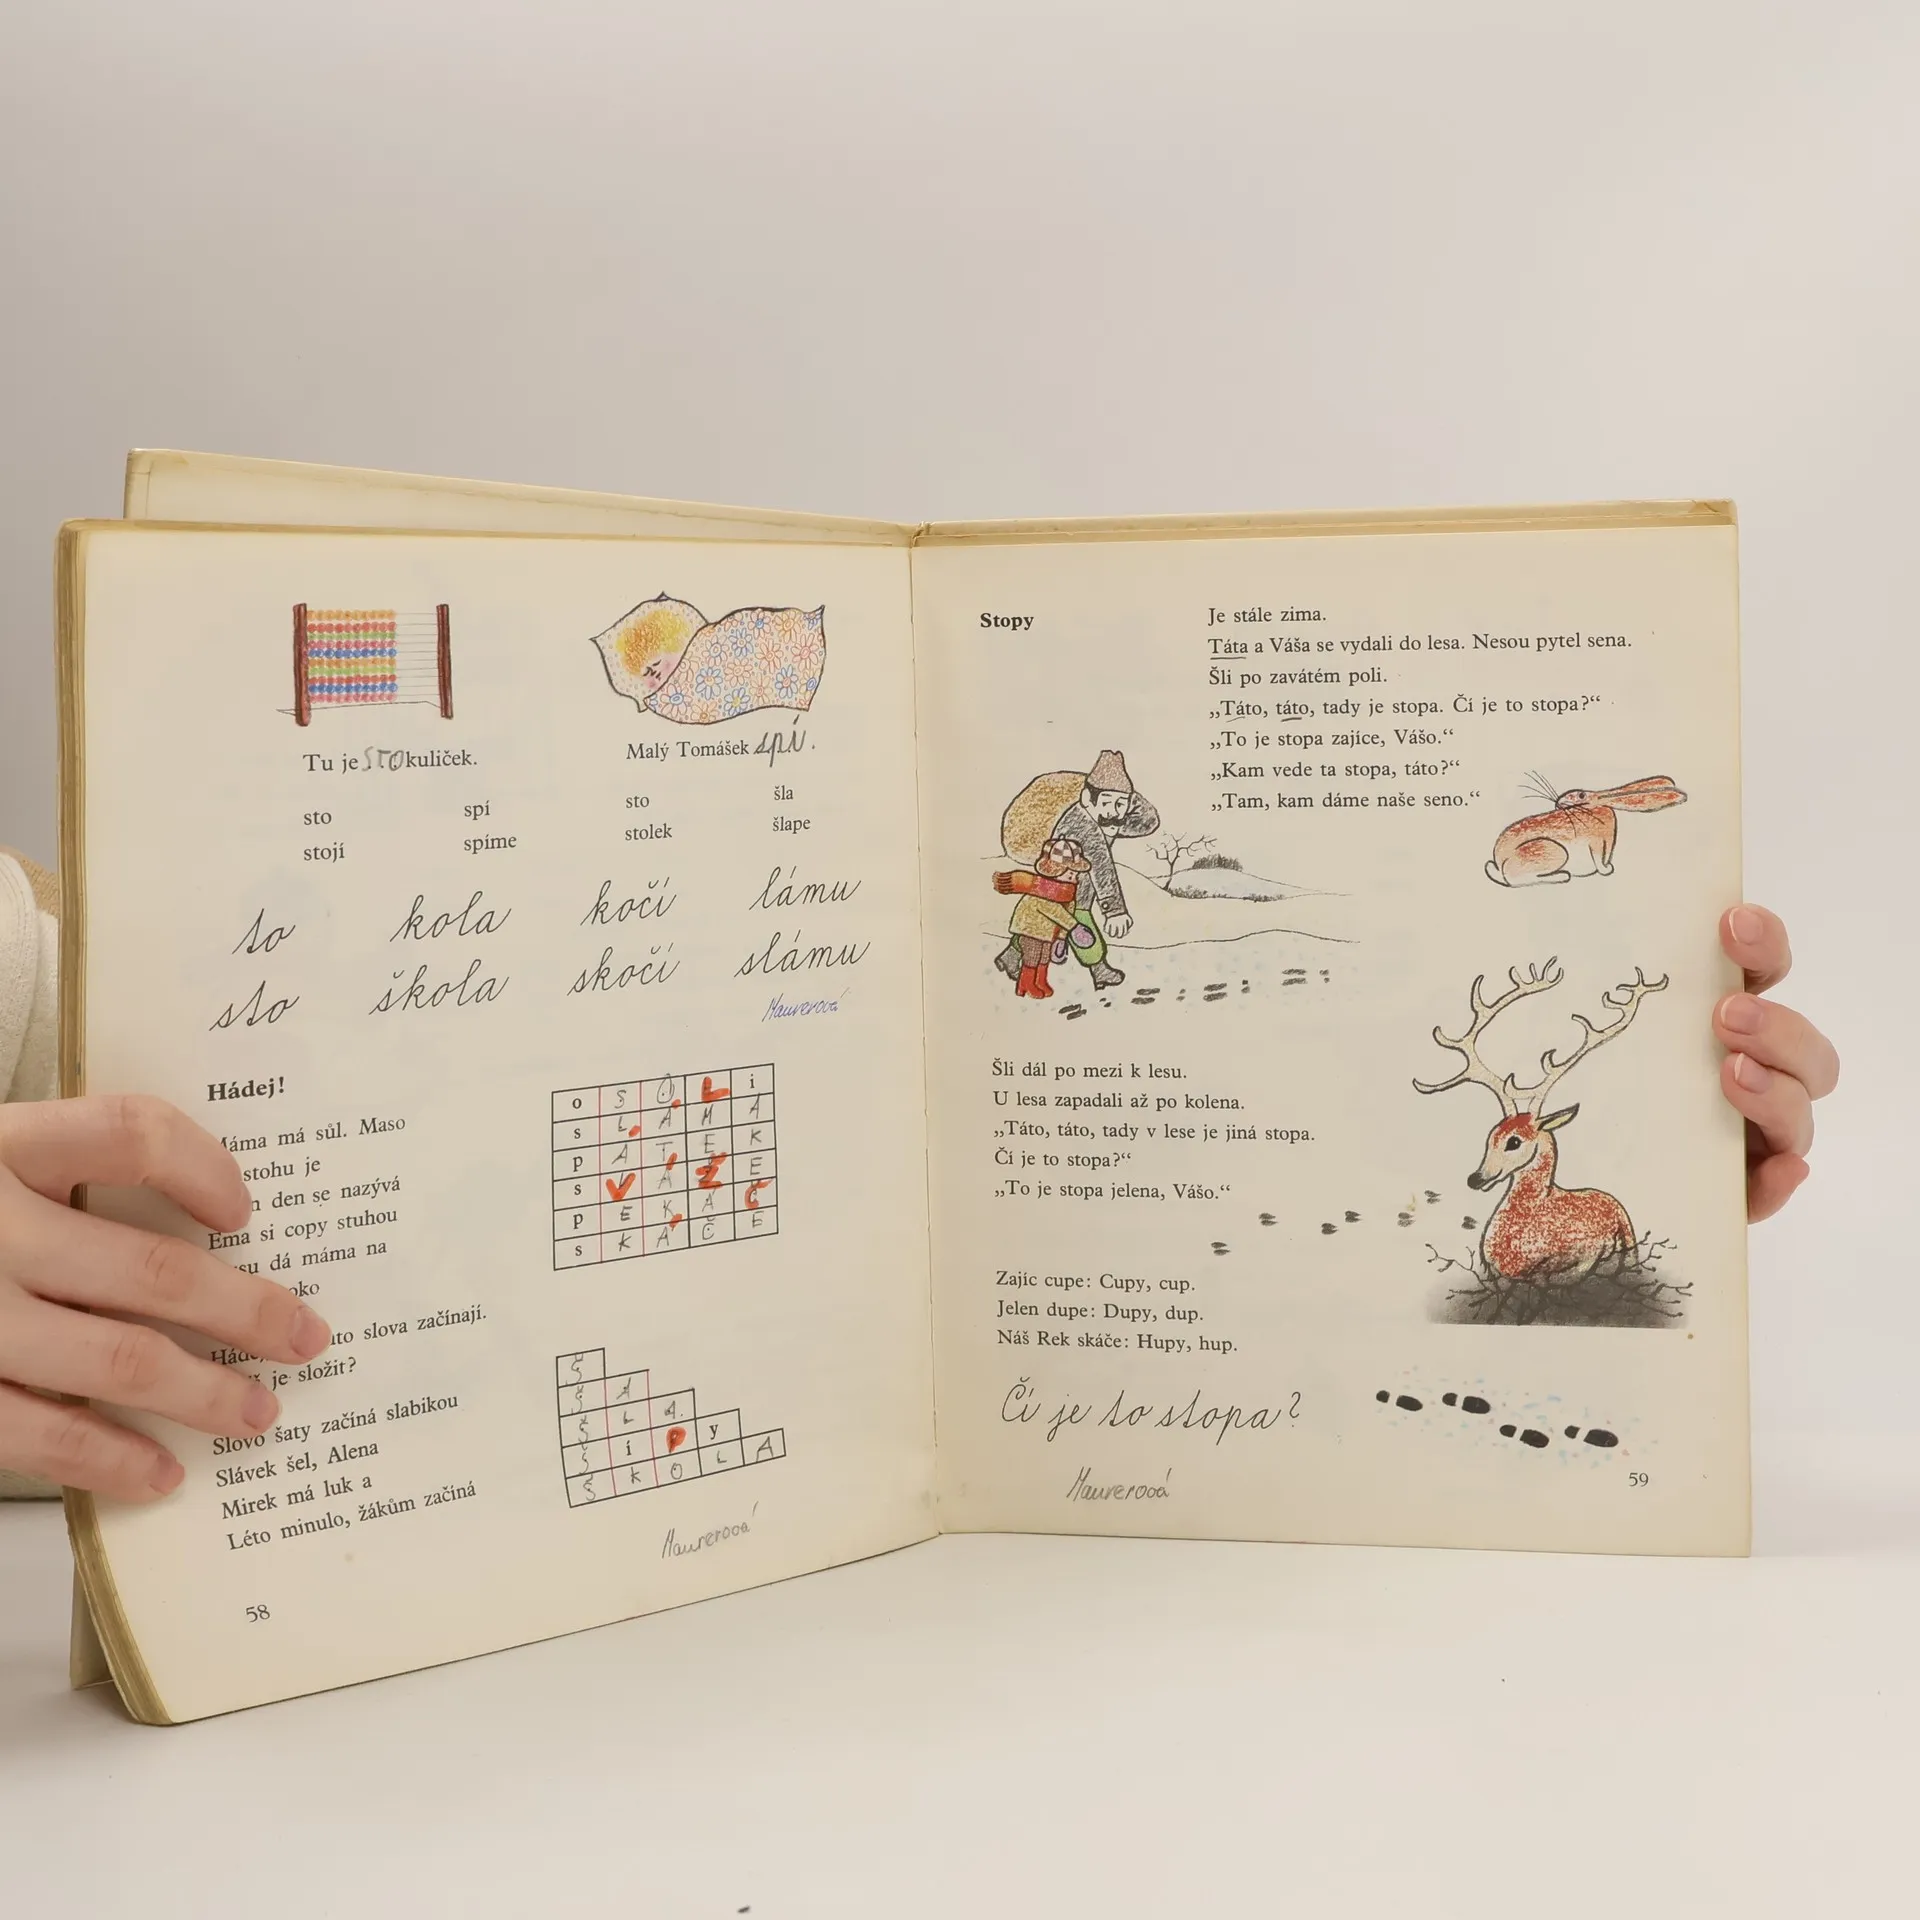 Tu je STO kuliček.
Malý Tomášek spí.
sto spí sto šla
stojí spíme stolek šlape
to kola kočí lámu
sto škola skočí slámu
Maurerová
Hádej!
Máma má sůl. Maso
stohu je
den se nazývá
Ema si copy stuhou
dá máma na
oko
slova začínají.
je složit?
Slovo šaty začíná slabikou
Slávek šel, Alena
Mirek má luk a
Léto minulo, žákům začíná
o S O L i
s L Á M Á
p A T E K
s V Á Ž E
p E K Á Č
s K Á Č E
í P y
K O L A
Maurerová
58
Stopy
Je stále zima.
Táta a Váša se vydali do lesa. Nesou pytel sena.
Šli po zavátém poli.
„Táto, táto, tady je stopa. Čí je to stopa?“
„To je stopa zajíce, Vášo.“
„Kam vede ta stopa, táto?“
„Tam, kam dáme naše seno.“
Šli dál po mezi k lesu.
U lesa zapadali až po kolena.
„Táto, táto, tady v lese je jiná stopa.
Čí je to stopa?“
„To je stopa jelena, Vášo.“
Zajíc cupe: Cupy, cup.
Jelen dupe: Dupy, dup.
Náš Rek skáče: Hupy, hup.
Čí je to stopa?
Maurerová
59